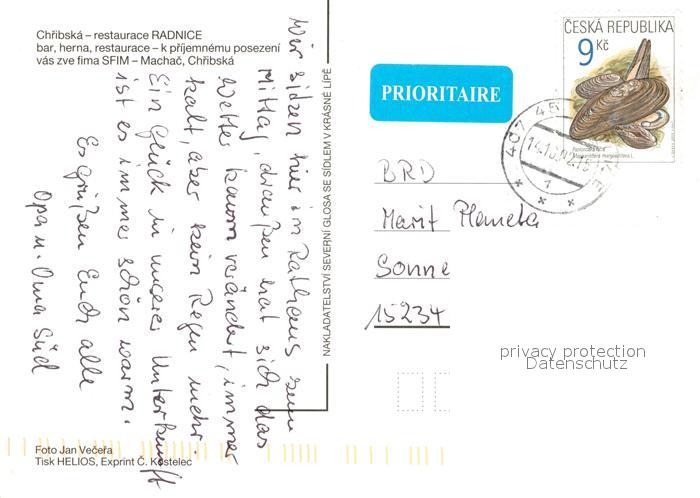 Chřibská – restaurace RADNICE
bar, herna, restaurace – k příjemnému posezení
vás zve fima SFIM – Machač, Chřibská
Wir sitzen hier im Rathaus zum
Mittag, draußen hat sich das
Wetter kaum verändert, immer
kalt, aber kein Regen mehr.
Ein Glück in unserer Unterkunft
ist es immer schön warm.
Es grüßen Euch alle
Opa u. Oma Süd
Foto Jan Večeřa
Tisk HELIOS, Exprint Č. Kostelec
NAKLADATELSTVÍ SEVERNÍ GLOSA SE SÍDLEM V KRÁSNÉ LÍPĚ
PRIORITAIRE
ČESKÁ REPUBLIKA
9 Kč
Perlorodka říční
Margaritifera margaritifera L.
407 45
BRD
Marit Plameta
Sonne
15234
privacy protection
Datenschutz